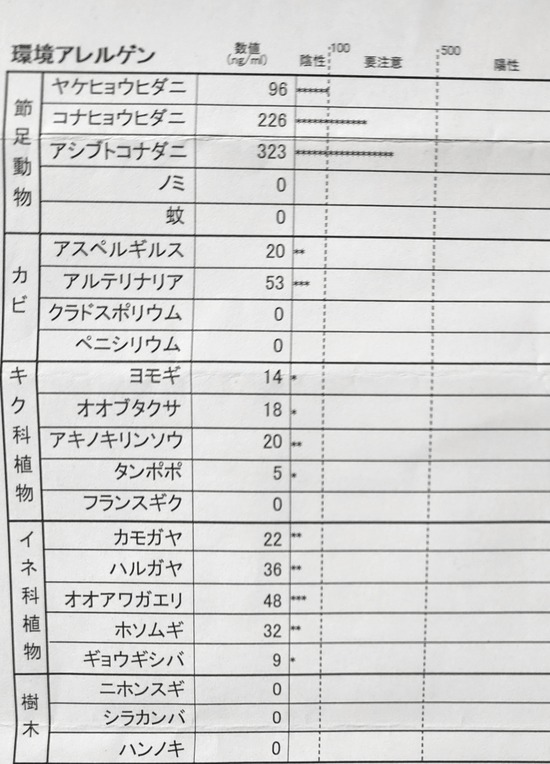 環境アレルゲン 数値 (ng/ml) 陰性 100 要注意 500 陽性
節足動物
ヤケヒョウヒダニ 96 ******
コナヒョウヒダニ 226
アシブトコナダニ 323
ノミ 0
蚊 0
カビ
アスペルギルス 20 **
アルテリナリア 53 ***
クラドスポリウム 0
ペニシリウム 0
キク科植物
ヨモギ 14 *
オオブタクサ 18 *
アキノキリンソウ 20 **
タンポポ 5 *
フランスギク 0
イネ科植物
カモガヤ 22 **
ハルガヤ 36 **
オオアワガエリ 48 ***
ホソムギ 32 **
ギョウギシバ 9 *
樹木
ニホンスギ 0
シラカンバ 0
ハンノキ 0